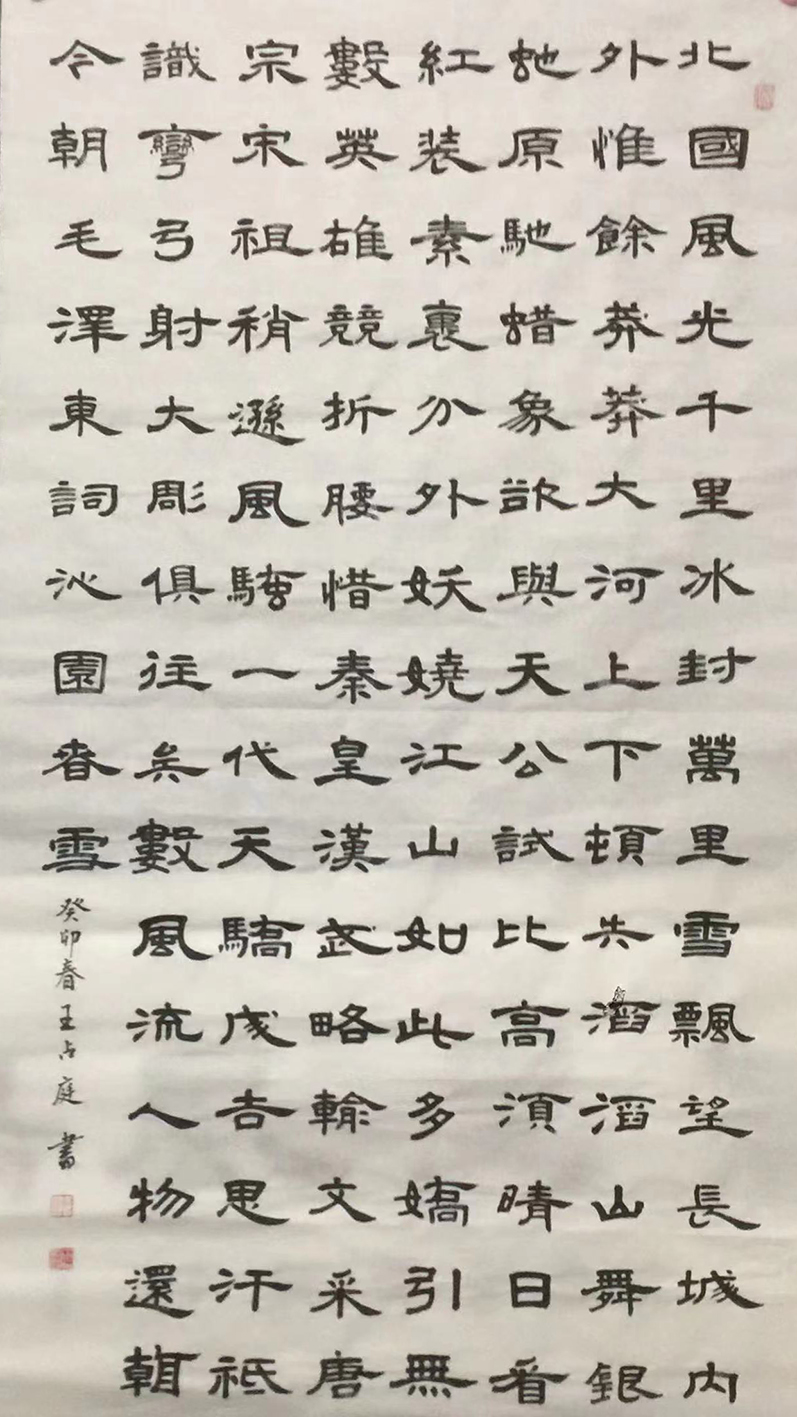 北國風光千里冰封萬里雪飄望長城内
外惟餘莽莽大河上下頓失滔滔山舞銀
虵原馳蜡象欲與天公試比高須晴日看
紅装素裹分外妖嬈江山如此多嬌引無
數英雄競折腰惜秦皇漢武略輸文采唐
宗宋祖稍遜風騷一代天驕成吉思汗祗
識彎弓射大彫俱往矣數風流人物還朝
今朝毛澤東詞沁園春雪
癸卯春王占庭書